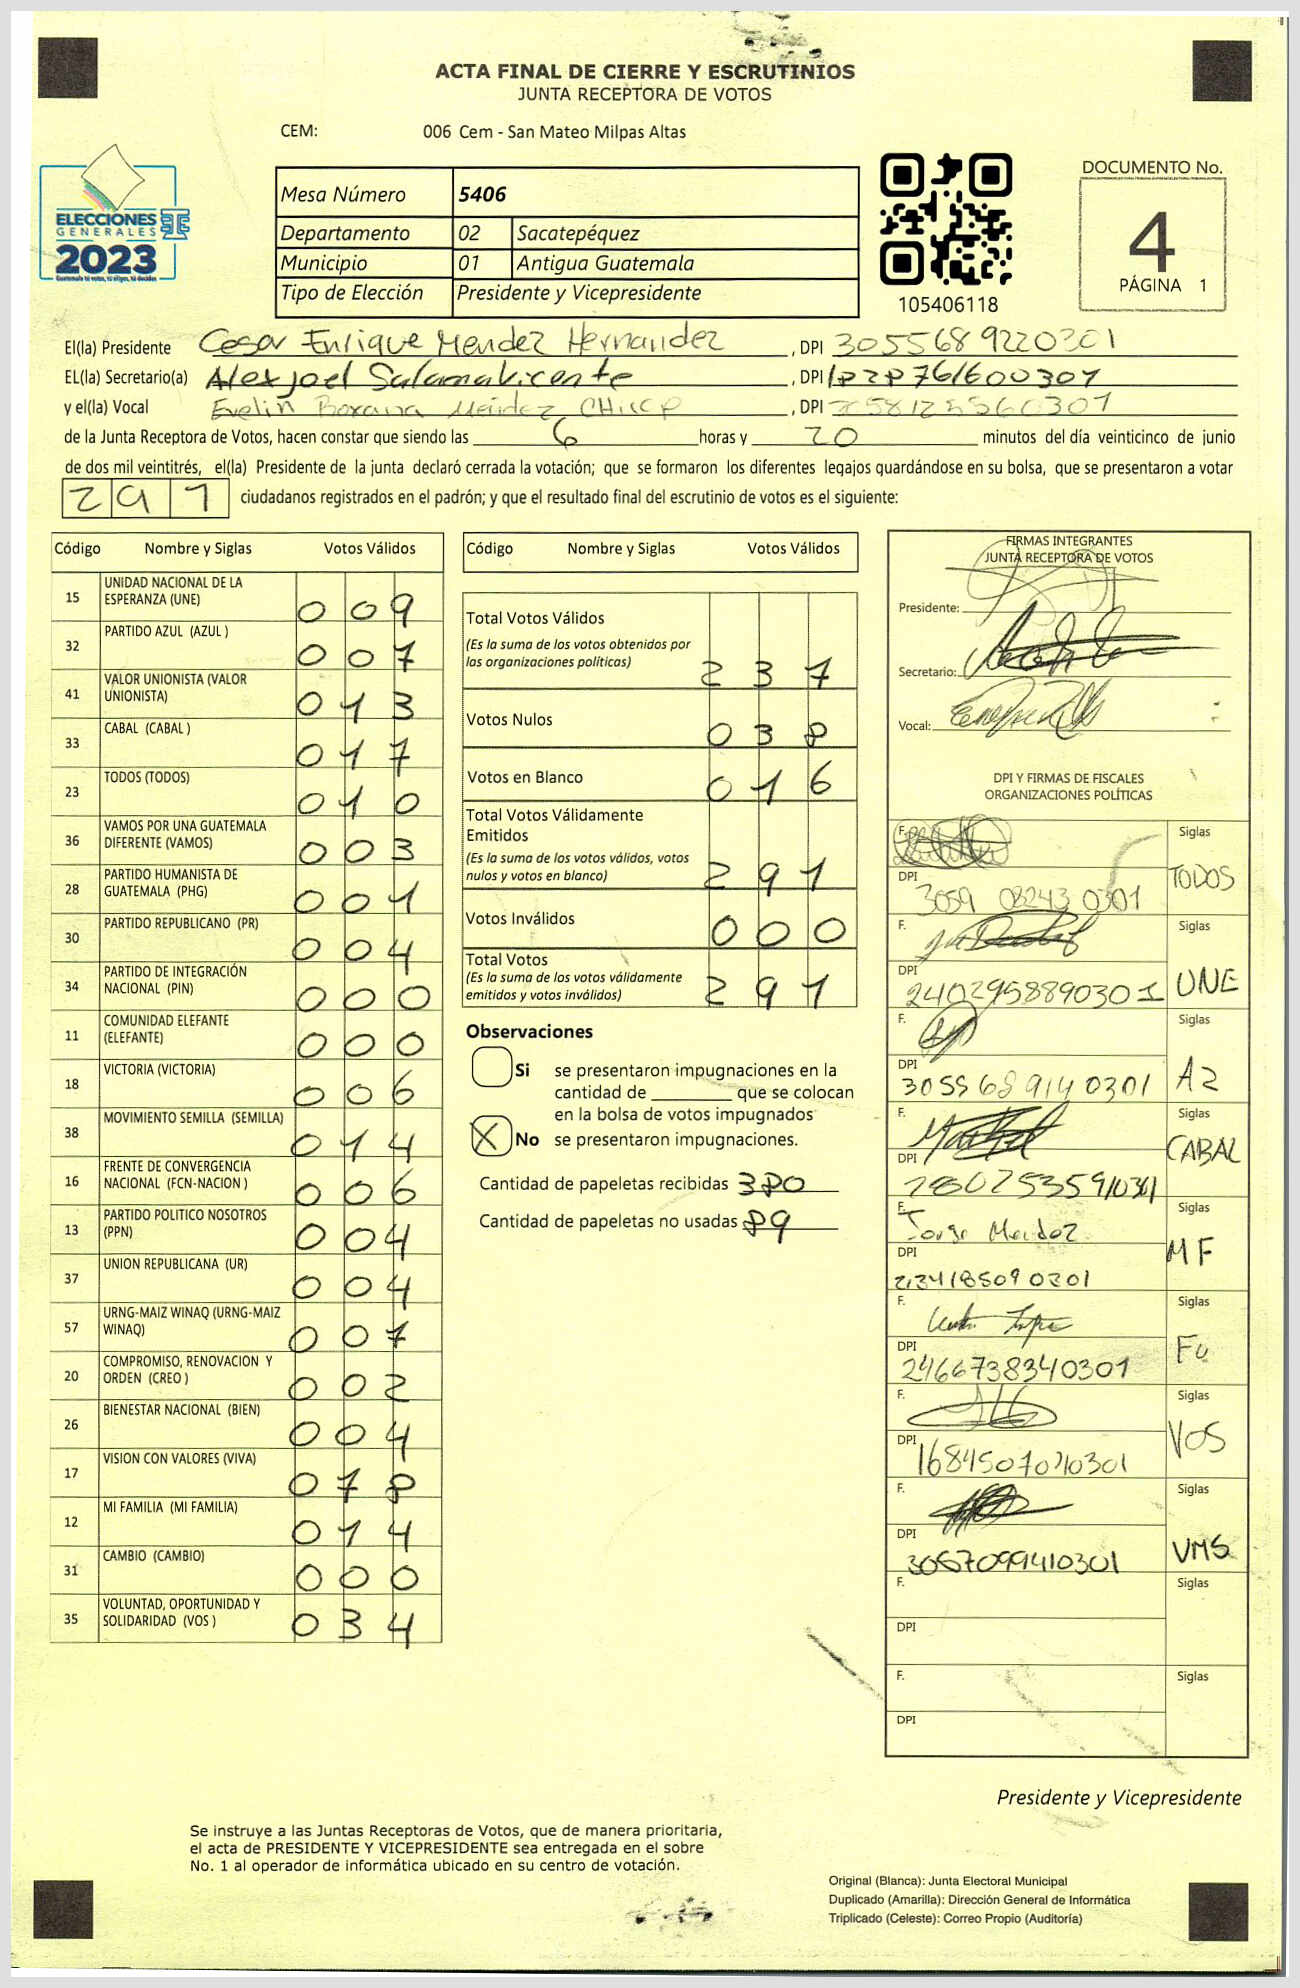 ACTA FINAL DE CIERRE Y ESCRUTINIOS
JUNTA RECEPTORA DE VOTOS
CEM: 006 Cem - San Mateo Milpas Altas
ELECCIONES
GENERALES
2023
Guatemala tú votas, tú eliges, tú decides
Mesa Número 5406
Departamento 02 Sacatepéquez
Municipio 01 Antigua Guatemala
Tipo de Elección Presidente y Vicepresidente
105406118
DOCUMENTO No.
4
PÁGINA 1
El(la) Presidente Cesar Enrique Mendez Hernandez , DPI 3055689220301
EL(la) Secretario(a) Alexjoel Salamavicente , DPI
y el(la) Vocal Evelin Roxana Méndez , DPI
de la Junta Receptora de Votos, hacen constar que siendo las 6 horas y 20 minutos del día veinticinco de junio
de dos mil veintitrés, el(la) Presidente de la junta declaró cerrada la votación; que se formaron los diferentes legajos quardándose en su bolsa, que se presentaron a votar
291 ciudadanos registrados en el padrón; y que el resultado final del escrutinio de votos es el siguiente:
Código Nombre y Siglas Votos Válidos
15 UNIDAD NACIONAL DE LA
ESPERANZA (UNE) 009
32 PARTIDO AZUL (AZUL ) 007
41 VALOR UNIONISTA (VALOR
UNIONISTA) 013
33 CABAL (CABAL ) 017
23 TODOS (TODOS) 010
36 VAMOS POR UNA GUATEMALA
DIFERENTE (VAMOS) 003
28 PARTIDO HUMANISTA DE
GUATEMALA (PHG) 001
30 PARTIDO REPUBLICANO (PR) 004
34 PARTIDO DE INTEGRACIÓN
NACIONAL (PIN) 000
11 COMUNIDAD ELEFANTE
(ELEFANTE) 000
18 VICTORIA (VICTORIA) 006
38 MOVIMIENTO SEMILLA (SEMILLA) 014
16 FRENTE DE CONVERGENCIA
NACIONAL (FCN-NACION ) 006
13 PARTIDO POLITICO NOSOTROS
(PPN) 004
37 UNION REPUBLICANA (UR) 004
57 URNG-MAIZ WINAQ (URNG-MAIZ
WINAQ) 007
20 COMPROMISO, RENOVACION Y
ORDEN (CREO ) 002
26 BIENESTAR NACIONAL (BIEN) 004
17 VISION CON VALORES (VIVA) 078
12 MI FAMILIA (MI FAMILIA) 014
31 CAMBIO (CAMBIO) 000
35 VOLUNTAD, OPORTUNIDAD Y
SOLIDARIDAD (VOS ) 034
Código Nombre y Siglas Votos Válidos
Total Votos Válidos
(Es la suma de los votos obtenidos por
las organizaciones políticas) 237
Votos Nulos 038
Votos en Blanco 016
Total Votos Válidamente
Emitidos
(Es la suma de los votos válidos, votos
nulos y votos en blanco) 291
Votos Inválidos 000
Total Votos
(Es la suma de los votos válidamente
emitidos y votos inválidos) 291
Observaciones
Si se presentaron impugnaciones en la
cantidad de ________ que se colocan
en la bolsa de votos impugnados
X No se presentaron impugnaciones.
Cantidad de papeletas recibidas 380
Cantidad de papeletas no usadas 89
FIRMAS INTEGRANTES
JUNTA RECEPTORA DE VOTOS
Presidente:
Secretario:
Vocal:
DPI Y FIRMAS DE FISCALES
ORGANIZACIONES POLÍTICAS
F. Siglas
DPI 3059 08243 0301 TODOS
F. Siglas
DPI 2402958890301 UNE
F. Siglas
DPI 3055689140301 AZ
F. Siglas
DPI CABAL
F. Jorge Mendez Siglas
DPI MF
F. Siglas
DPI 2466738340301
F. Siglas
DPI VOS
F. Siglas
DPI 3057099410301 VMS
F. Siglas
DPI
F. Siglas
DPI
Presidente y Vicepresidente
Se instruye a las Juntas Receptoras de Votos, que de manera prioritaria,
el acta de PRESIDENTE Y VICEPRESIDENTE sea entregada en el sobre
No. 1 al operador de informática ubicado en su centro de votación.
Original (Blanca): Junta Electoral Municipal
Duplicado (Amarilla): Dirección General de Informática
Triplicado (Celeste): Correo Propio (Auditoría)